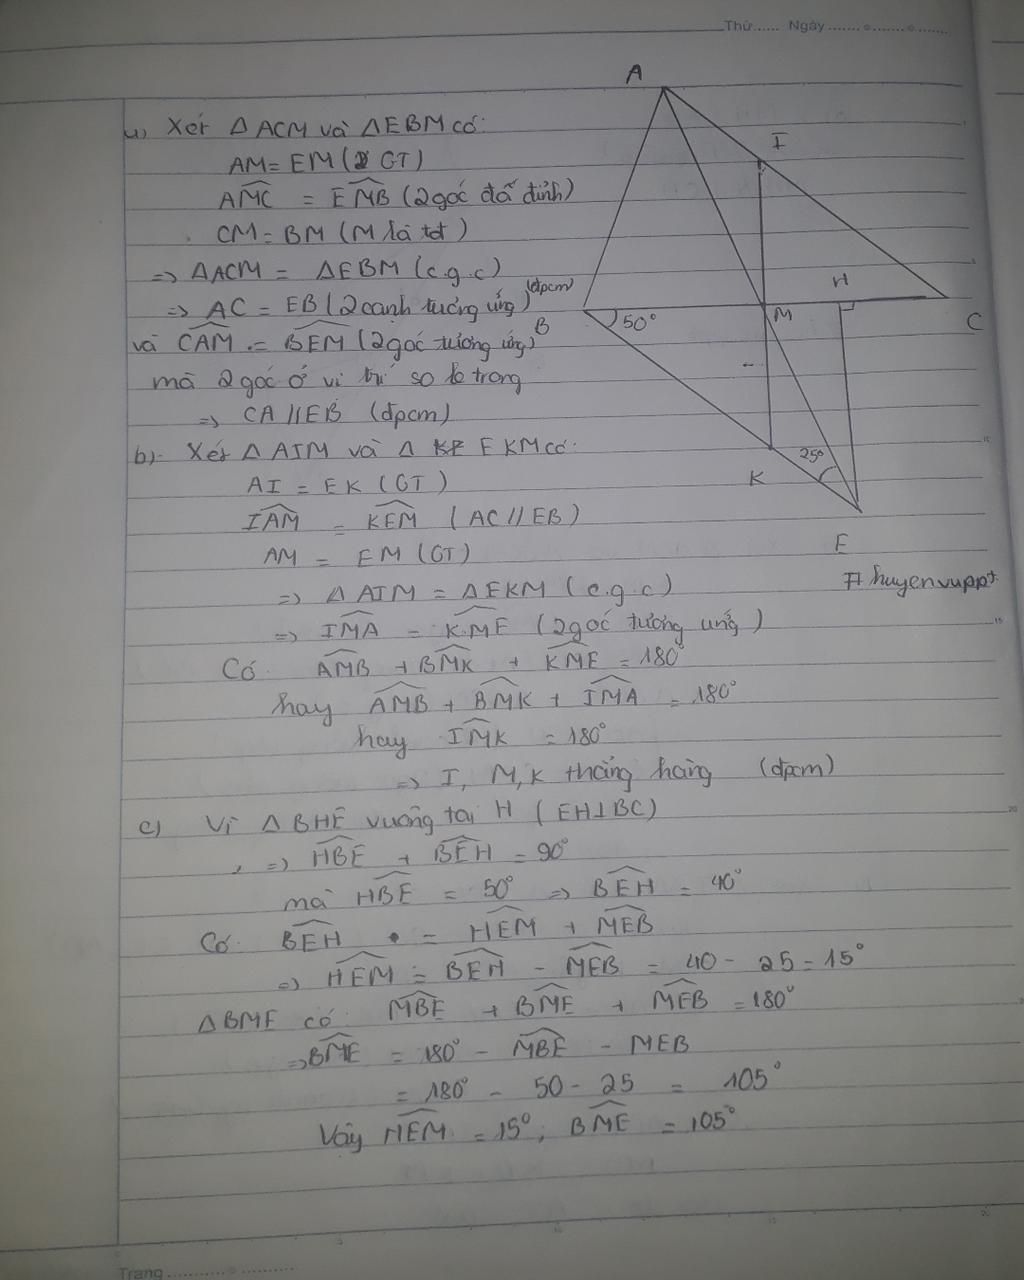 Thứ...... Ngày.................
a) Xét Δ ACM và ΔEBM có:
AM = EM (GT)
AMC = EMB (2 góc đđ đỉnh)
CM = BM (M là tđ)
=> ΔACM = ΔEBM (c.g.c)
=> AC = EB (2 cạnh tương ứng) (đpcm)
và CAM = BEM (2 góc tương ứng)
mà 2 góc ở vị trí so le trong
=> CA // EB (đpcm)
b) Xét Δ AIM và Δ EKM có:
AI = EK (GT)
IAM = KEM (AC // EB)
AM = EM (GT)
=> Δ AIM = ΔEKM (c.g.c)
=> IMA = KME (2 góc tương ứng)
Có AMB + BMK + KME = 180°
hay AMB + BMK + IMA = 180°
hay IMK = 180°
=> I, M, K thẳng hàng (đpcm)
c) Vì Δ BHE vuông tại H (EH⊥BC)
=> HBE + BEH = 90°
mà HBE = 50° => BEH = 40°
Có BEH = HEM + MEB
=> HEM = BEH - MEB = 40 - 25 = 15°
ΔBME có MBE + BME + MEB = 180°
=> BME = 180° - MBE - MEB
= 180° - 50 - 25 = 105°
Vậy HEM = 15°, BME = 105°
A
I
H
B
50°
M
C
K
25°
E
#huyenvuppt
Trang..............